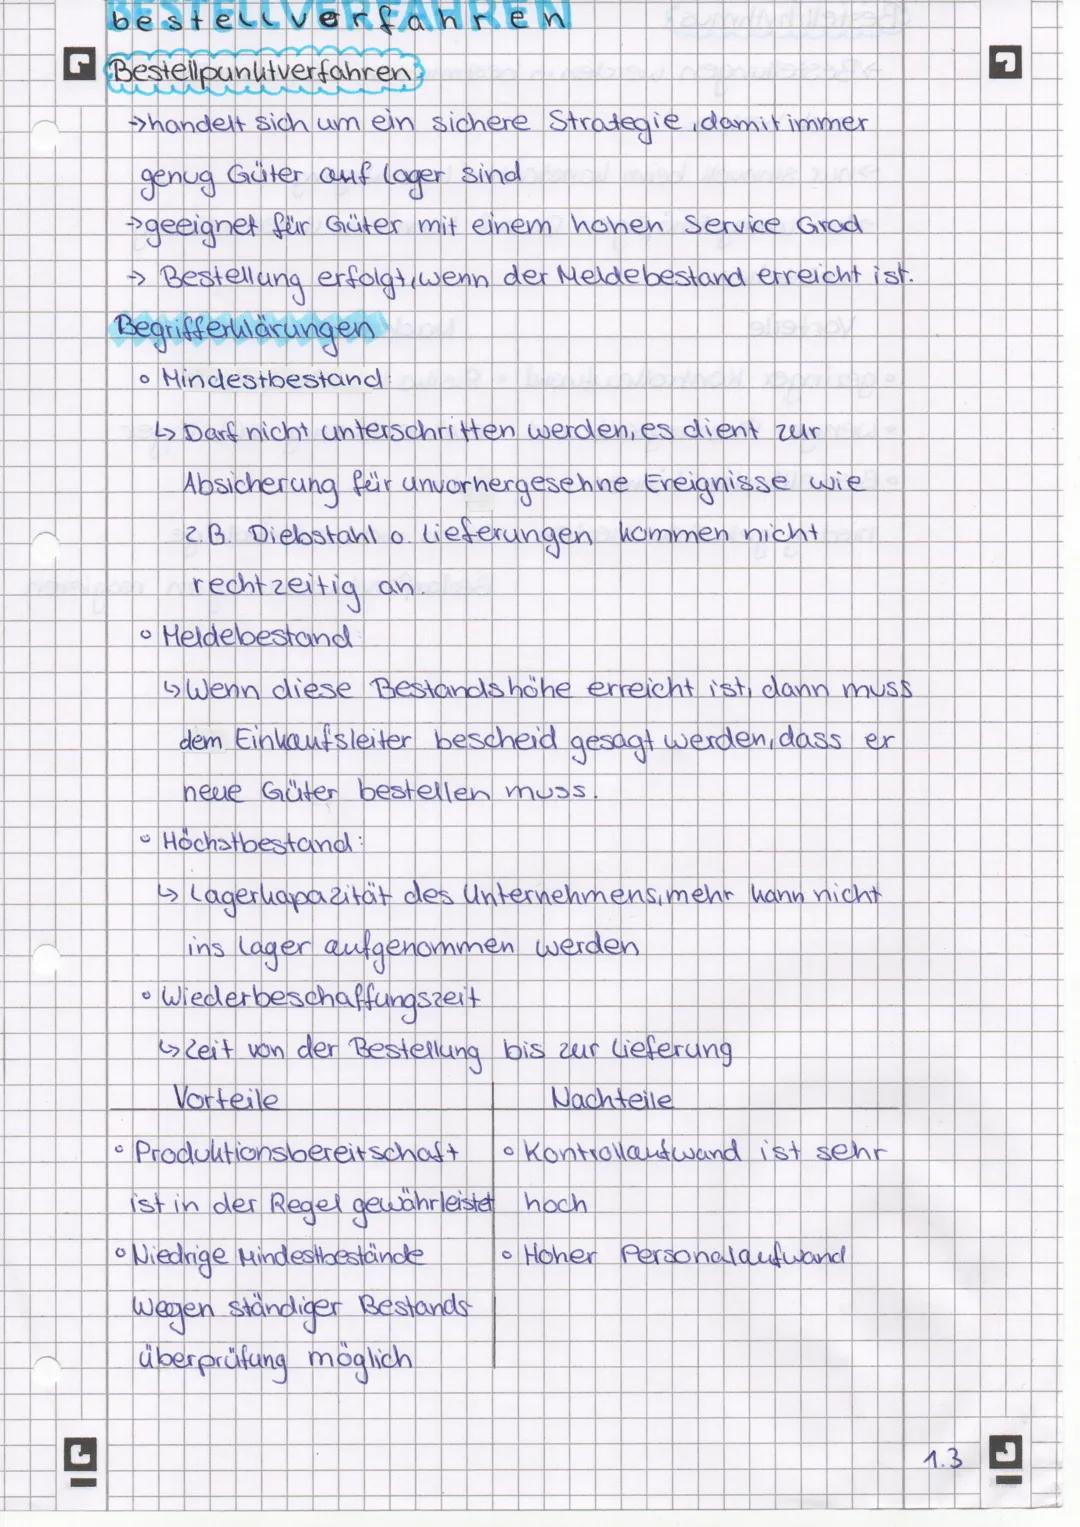 BESTELLVERFAHREN
bestellverfahren
Bestellpunktverfahren:
→handelt sich um ein sichere Strategie, damit immer
genug Güter auf Lager sind
→geeignet für Güter mit einem hohen Service Grad
→ Bestellung erfolgt, wenn der Meldebestand erreicht ist.
Begrifferklärungen
° Mindestbestand:
↳ Darf nicht unterschritten werden, es dient zur
Absicherung für unvorhergesehne Ereignisse wie
z.B. Diebstahl o. Lieferungen kommen nicht
rechtzeitig an.
° Meldebestand
↳ Wenn diese Bestandshöhe erreicht ist, dann muss
dem Einkaufsleiter bescheid gesagt werden, dass er
neue Güter bestellen muss.
° Höchstbestand:
↳ Lagerkapazität des Unternehmens, mehr kann nicht
ins Lager aufgenommen werden
° Wiederbeschaffungszeit
↳ Zeit von der Bestellung bis zur Lieferung
Vorteile Nachteile
° Produktionsbereitschaft ° Kontrollaufwand ist sehr
ist in der Regel gewährleistet hoch
° Niedrige Mindestbestände ° Hoher Personalaufwand
wegen ständiger Bestands-
überprüfung möglich
1.3